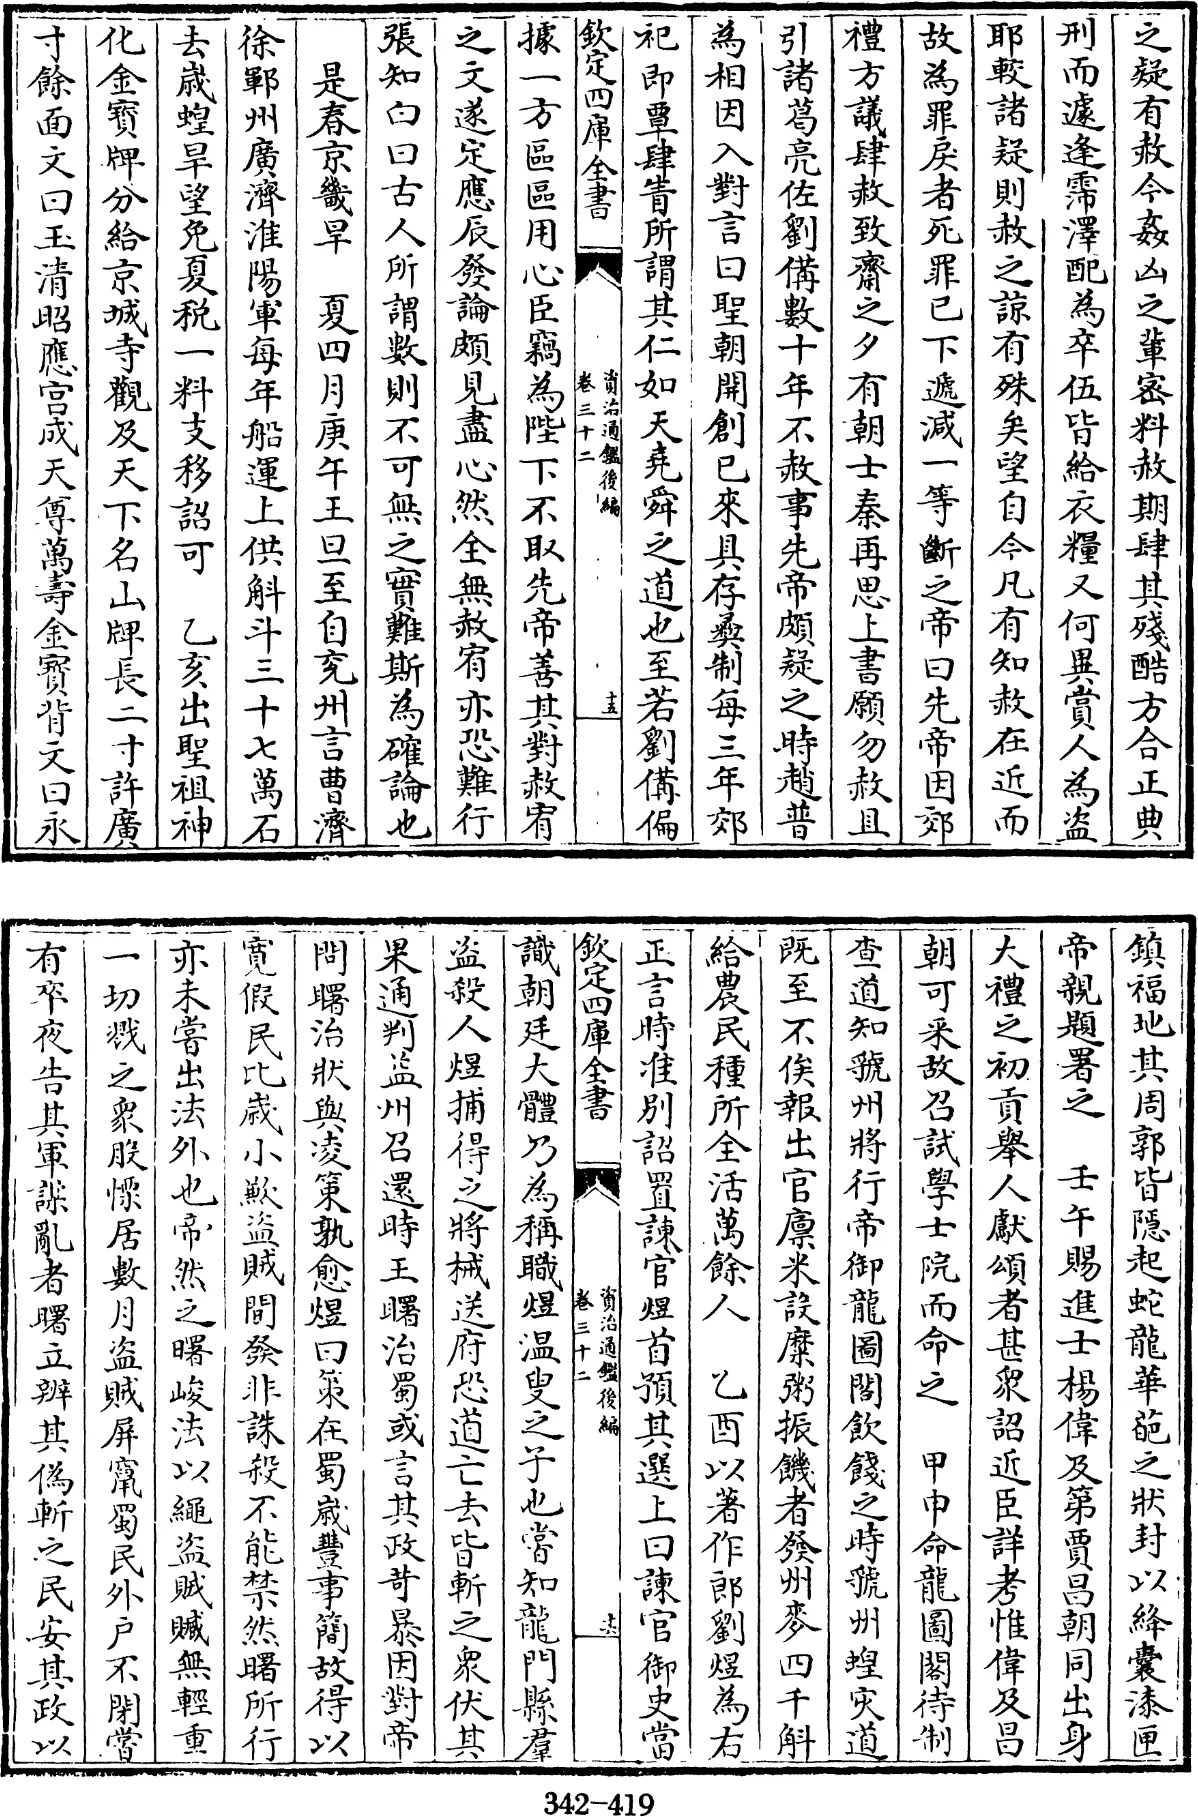 之疑有赦今姦凶之輩密料赦期肆其殘酷方合正典
刑而遽逢霈澤配為卒伍皆給衣糧又何異賞人為盜
耶較諸疑則赦之諒有殊矣望自今凡有知赦在近而
故為罪戾者死罪已下遞减一等斷之帝曰先帝因郊
禮方議肆赦致齋之夕有朝士秦再思上書願勿赦且
引諸葛亮佐劉備數十年不赦事先帝頗疑之時趙普
為相因入對言曰聖朝開創已來具存彛制每三年郊
祀即覃肆眚所謂其仁如天堯舜之道也至若劉備偏
欽定四庫全書
資治通鑑後編
卷三十二
十五
據一方區區用心臣竊為陛下不取先帝善其對赦宥
之文遂定應辰發論頗見盡心然全無赦宥亦恐難行
張知白曰古人所謂數則不可無之實難斯為確論也
是春京畿旱 夏四月庚午王旦至自兖州言曹濟
徐鄆州廣濟淮陽軍每年船運上供斛斗三十七萬石
去歲蝗旱望免夏税一料支移詔可 乙亥出聖祖神
化金寳牌分給京城寺觀及天下名山牌長二寸許廣
寸餘面文曰玉清昭應宮成天尊萬壽金寳背文曰永
鎮福地其周郭皆隱起蛇龍華葩之狀封以絳囊漆匣
帝親題署之 壬午賜進士楊偉及第賈昌朝同出身
大禮之初貢舉人獻頌者甚衆詔近臣詳考惟偉及昌
朝可采故召試學士院而命之 甲申命龍圖閣待制
查道知虢州將行帝御龍圖閣飲餞之時虢州蝗灾道
既至不俟報出官廪米設糜粥振饑者發州麥四千斛
給農民種所全活萬餘人 乙酉以著作郎劉煜為右
正言時准别詔置諫官煜首預其選上曰諫官御史當
欽定四庫全書
資治通鑑後編
卷三十二
十六
識朝廷大體乃為稱職煜温叟之子也嘗知龍門縣羣
盜殺人煜捕得之將械送府恐道亡去皆斬之衆伏其
果通判益州召還時王曙治蜀或言其政苛暴因對帝
問曙治狀與凌策孰愈煜曰策在蜀歲豐事簡故得以
寛假民比歲小歉盜賊間發非誅殺不能禁然曙所行
亦未嘗出法外也帝然之曙峻法以繩盜賊贓無輕重
一切戮之衆股慄居數月盜賊屏竄蜀民外户不閉嘗
有卒夜告其軍謀亂者曙立辨其偽斬之民安其政以
342-419